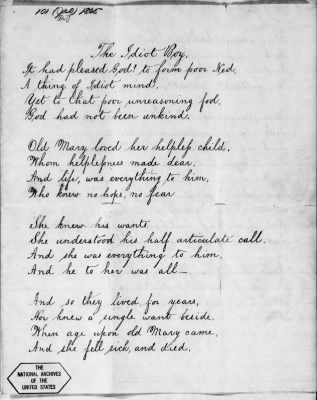 101 (Jac) 1865
The Idiot Boy.
It had pleased God! to form poor Ned,
A thing of Idiot mind,
Yet to that poor unreasoning fool,
God had not been unkind.
Old Mary loved her helpless child,
Whom helplessness made dear,
And life, was everything to him,
Who knew no hope, no fear
She knew his wants
She understood his half articulate call,
And she was everything to him,
And he to her was all—
And so they lived for years,
Nor knew a single want beside.
When age upon old Mary came,
And she fell sick, and died.
THE
NATIONAL ARCHIVES
OF THE
UNITED STATES